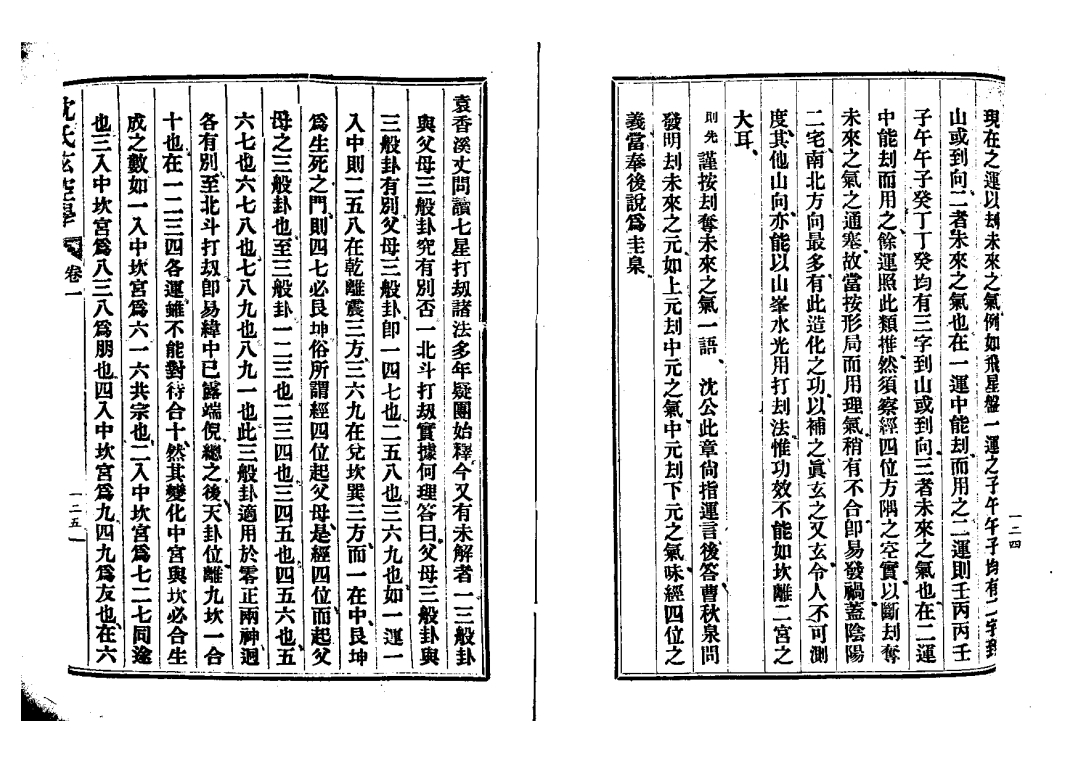 現在之運以刦未來之氣例如飛星盤一運之子午午子均有二字到
山或到向二者未來之氣也在一運中能刦而用之二運則壬丙丙壬
子午午子癸丁丁癸均有三字到山或到向三者未來之氣也在二運
中能刦而用之餘運照此類推然須察經四位方隅之空實以斷刦奪
未來之氣之通塞故當按形局而用理氣稍有不合卽易發禍蓋陰陽
二宅南北方向最多有此造化之功以補之眞玄之又玄令人不可測
度其他山向亦能以山峯水光用打刦法惟功效不能如坎離二宮之
大耳
則先 謹按刦奪未來之氣一語沈公此章尙指運言後答曹秋泉問
發明刦未來之元如上元刦中元之氣中元刦下元之氣味經四位之
義當奉後說爲圭臬
一二四
袁香溪丈問讀七星打刼諸法多年疑團始釋今又有未解者一三般卦
與父母三般卦究有別否一北斗打刼實據何理答曰父母三般卦與
三般卦有別父母三般卦卽一四七也二五八也三六九也如一運一
入中則二五八在乾離震三方三六九在兌坎巽三方而一在中艮坤
爲生死之門則四七必艮坤俗所謂經四位起父母是經四位而起父
母之三般卦也至三般卦一二三也二三四也三四五也四五六也五
六七也六七八也七八九也八九一也此三般卦適用於零正兩神迥
各有別至北斗打刼卽易緯中已露端倪總之後天卦位離九坎一合
十也在一二三四各運雖不能對待合十然其變化中宮與坎必合生
成之數如一入中坎宮爲六一六共宗也二入中坎宮爲七二七同途
也三入中坎宮爲八三八爲朋也四入中坎宮爲九四九爲友也在六
沈氏玄空學 卷一
一二五